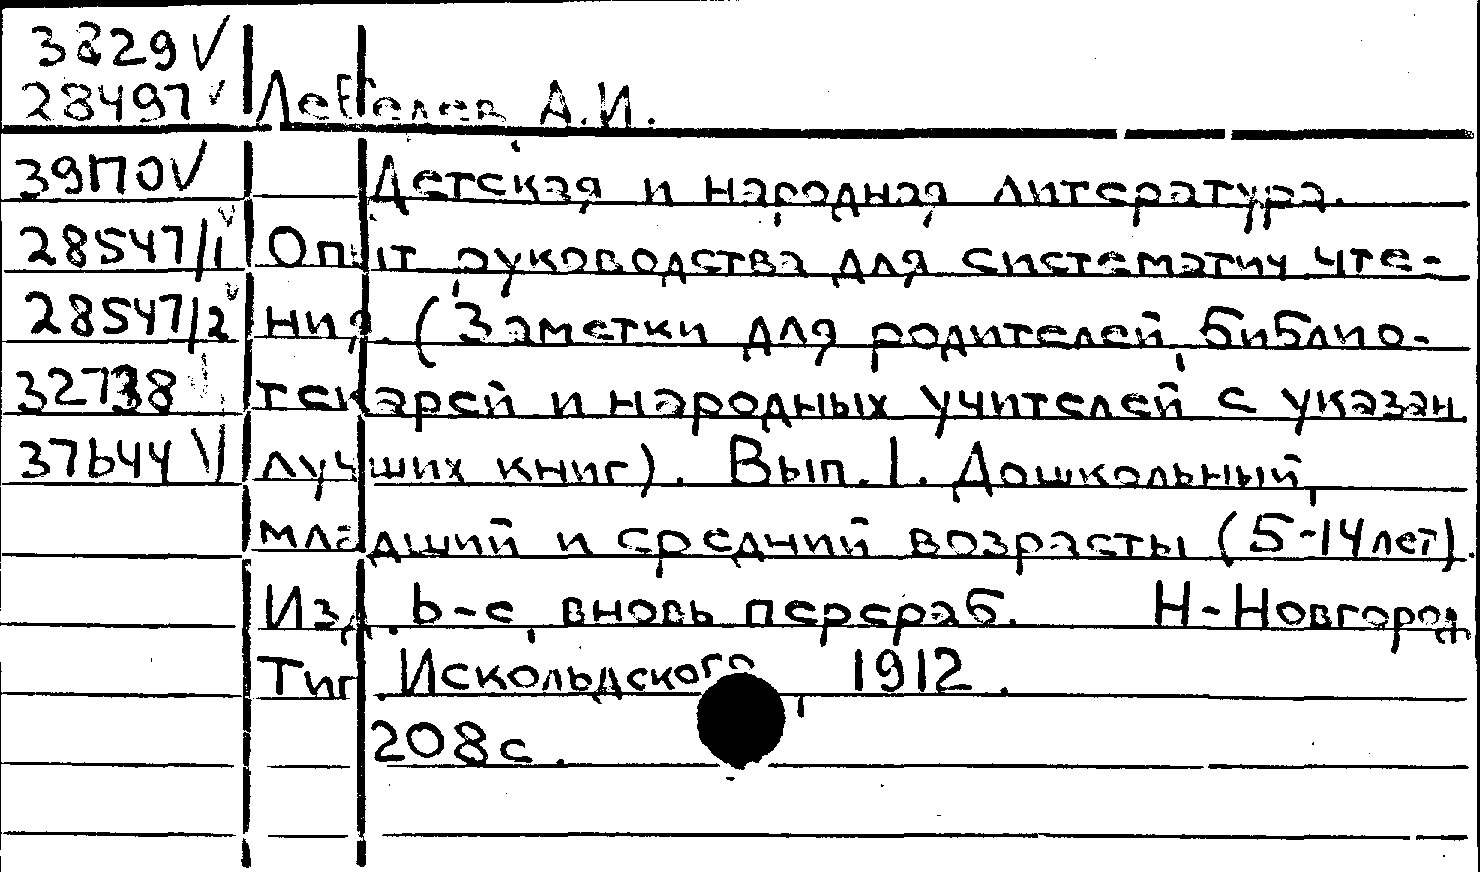 3829 ✓
28497 ✓ Лебедев А.И.
39170 ✓ Детская и народная литература.
28547/1 ✓ Опыт руководства для систематич чте-
28547/2 ✓ ния. (Заметки для родителей, библио-
32738 ✓ текарей и народных учителей с указан
37644 ✓ лучших книг). Вып. 1. Дошкольный,
младший и средний возрасты (5-14 лет).
Изд. 6-е, вновь перераб. Н-Новгород
Тип. Искольдского, 1912.
208 с.